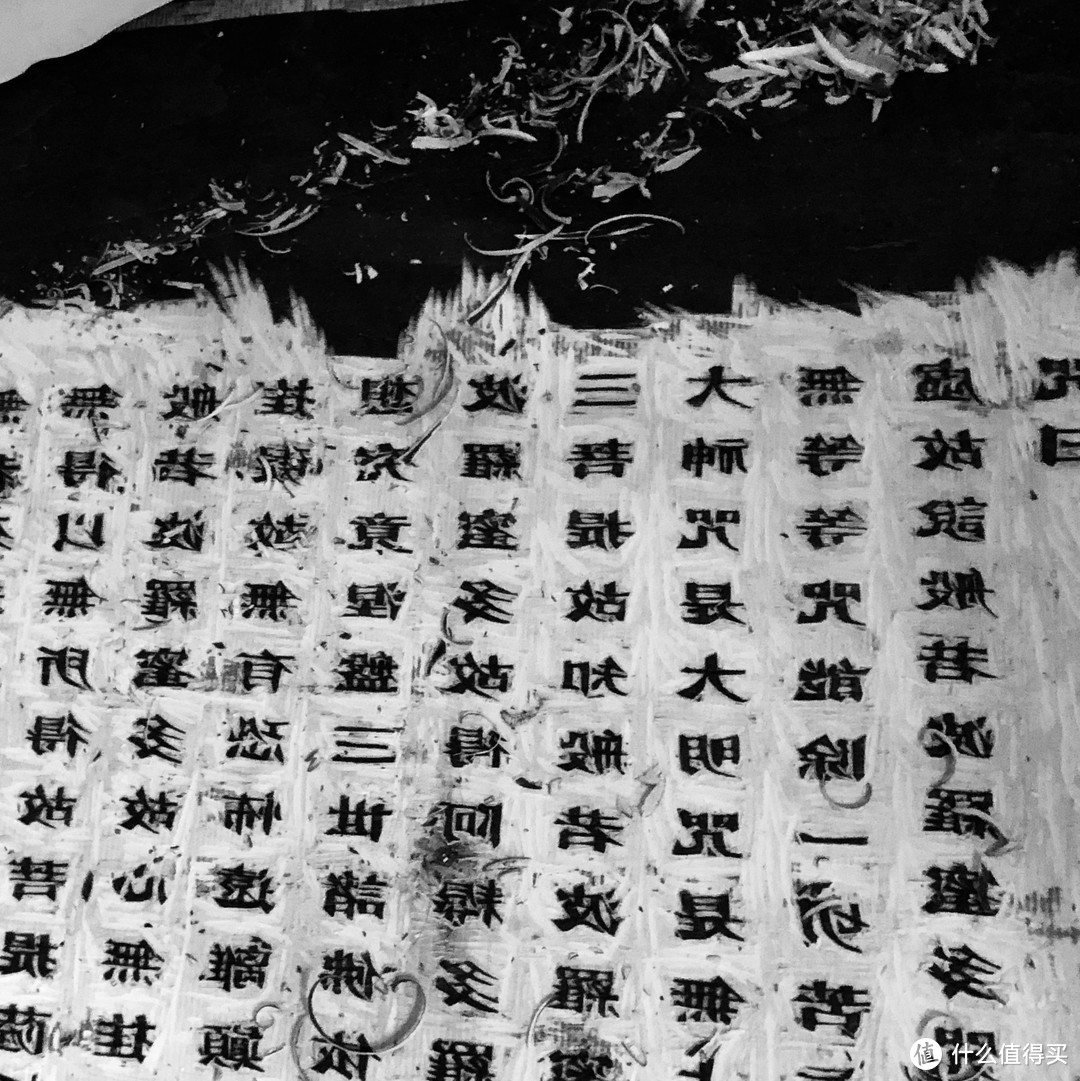 無得以無所得故菩提薩
般若波羅蜜多故心無挂
挂礙故無有恐怖遠離顛
想究竟涅盤三世諸佛依
波羅蜜多故得阿耨多羅
三菩提故知般若波羅蜜
大神咒是大明咒是無
無等等咒能除一切苦
虛故說般若波羅蜜多咒
咒曰
值 什么值得买